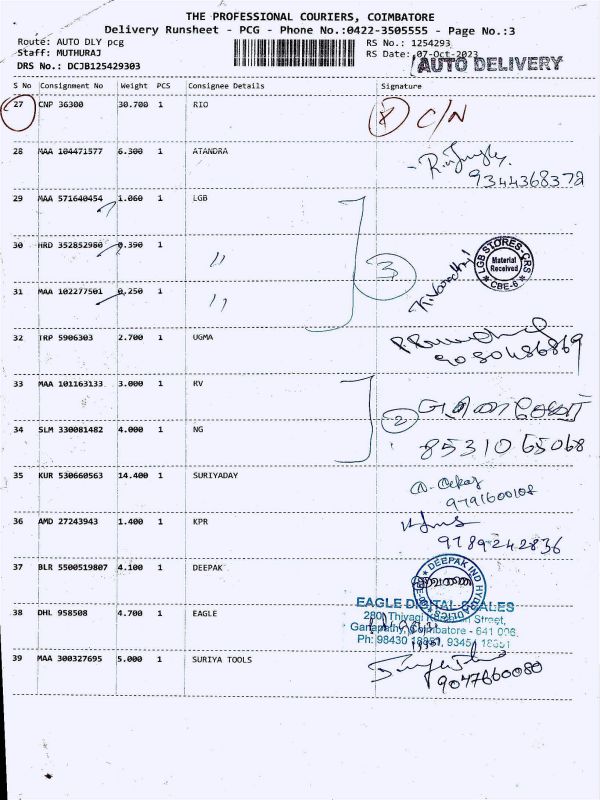 THE PROFESSIONAL COURIERS, COIMBATORE
Delivery Runsheet - PCG - Phone No.:0422-3505555 - Page No.:3
Route: AUTO DLY pcg RS No.: 1254293
Staff: MUTHURAJ RS Date: 07-Oct-2023
DRS No.: DCJB125429303 AUTO DELIVERY
S No Consignment No Weight PCS Consignee Details Signature
27 CNP 36300 30.700 1 RIO C/N
28 MAA 104471577 6.300 1 ATANDRA
9344368378
29 MAA 571640454 1.060 1 LGB
30 HRD 352852980 0.390 1 〃 3
LGB STORES-CRS
Material
Received
CBE-6
31 MAA 102277501 0.250 1 〃
32 TRP 5906303 2.700 1 UGMA
9080486869
33 MAA 101163133 3.000 1 RV
2
34 SLM 330081482 4.000 1 NG 85310 65068
35 KUR 530660563 14.400 1 SURIYADAY
9791600108
36 AMD 27243943 1.400 1 KPR
9789242836
37 BLR 5500519807 4.100 1 DEEPAK
DEEPAK IND
EAGLE DIGITAL SCALES
38 DHL 958508 4.700 1 EAGLE
Ganapathy, Coimbatore - 641 006.
39 MAA 300327695 5.000 1 SURIYA TOOLS
9077660080